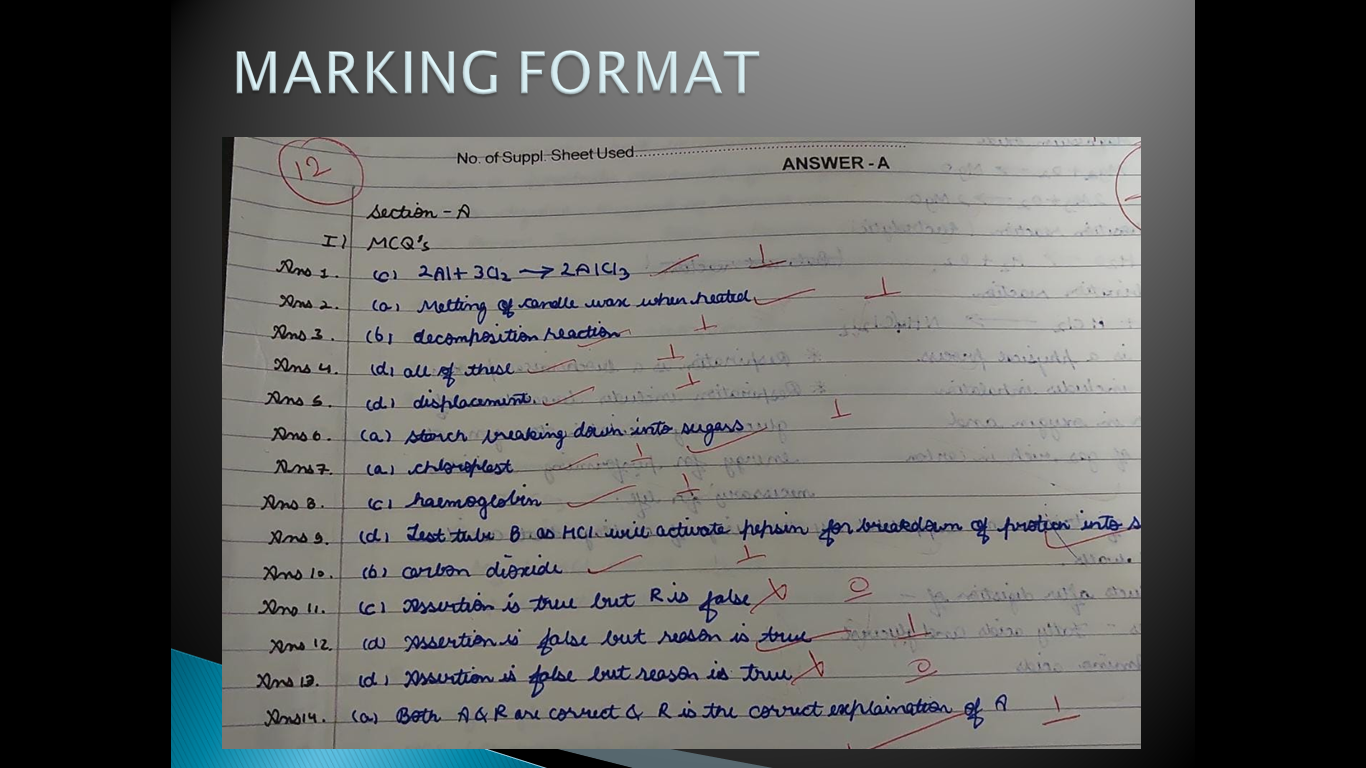 MARKING FORMAT
12
No. of Suppl. Sheet Used
ANSWER - A
Section - A
I) MCQ's
Ans 1. (c) 2Al + 3Cl2 → 2AlCl3 1
Ans 2. (a) Melting of candle wax when heated 1
Ans 3. (b) decomposition reaction 1
Ans 4. (d) all of these 1
Ans 5. (d) displacement. 1
Ans 6. (a) starch breaking down into sugars 1
Ans 7. (a) chloroplast 1
Ans 8. (c) haemoglobin 1
Ans 9. (d) Test tube B as HCl will activate pepsin for breakdown of protien into s
Ans 10. (b) carbon dioxide 1
Ans 11. (c) Assertion is true but R is false 0
Ans 12. (d) Assertion is false but reason is true 1
Ans 13. (d) Assertion is false but reason is true 0
Ans 14. (a) Both A & R are correct & R is the correct explaination of A 1